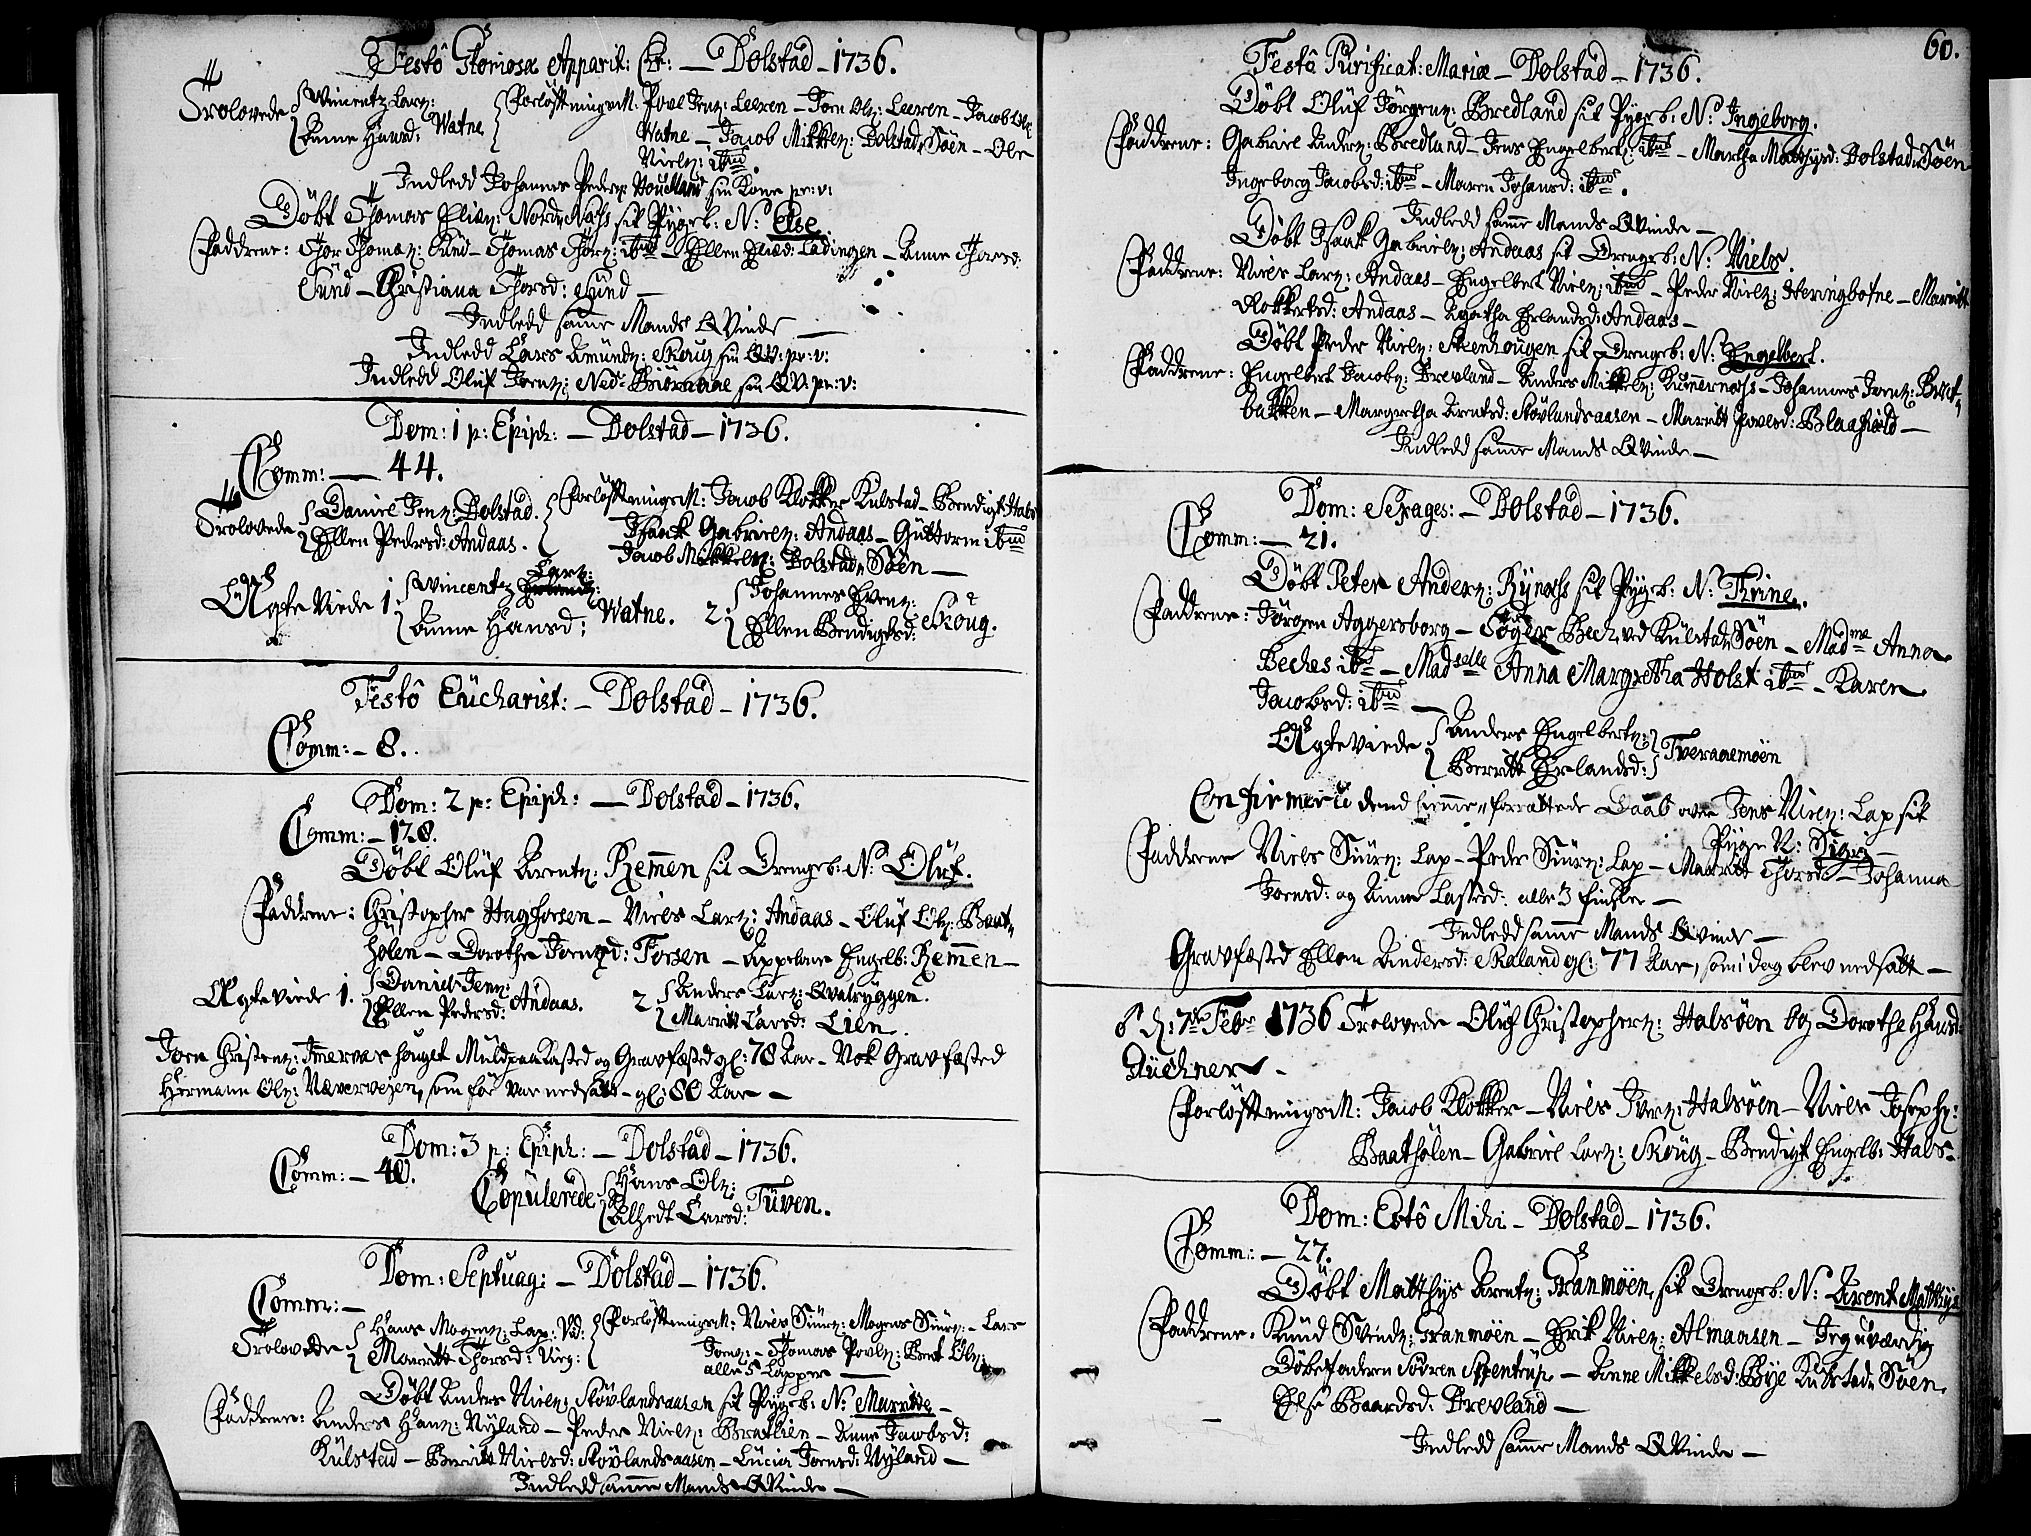 Festô Gloriosæ Apparit: Chr: — Dolstad — 1736.
Trolovede Vincentz Larz: Anne Hansd: Watne Forlöftningsm: Povel Jenz: Leeren — Jorn Olz: Leeren — Jacob Olz
Watne — Jacob Mikkelz: Dolstad Söen — Ole
Nielz: ibm
Indledd Johannes Pederz: Houkland sin Kone pr: v:
Döbt Thomas Eliæz: Nordr Næss sit Pigeb: N: Else.
Faddrene: Thor Thomæz: Sund — Thomas Thorz: ibm — Ellen Eliæd: Ladingen — Anne Thorsd:
Sund — Christiana Thorsd: Sund —
Indledd samme Mands Qvinde —
Indledd Lars Amundz: Skoug sin Qv: pr: v:
Indledd Oluf Jorenz: Ned: Biörnaae sin Qv: pr: v:
Dom: 1 p: Epiph: — Dolstad — 1736.
Comm: — 44.
Trolovede Daniel Jenz: Dolstad. Ellen Pedersd: Andaas. Forlöftningsm: Jacob Klokker Kulstad — Bendigt Hals
Isaack Gabrielz: Andaas — Guttorm ibm
Jacob Mikkelz: Dolstad Söen —
Ægte Viede 1. Vincentz Larz: Anne Hansd: Watne. 2. Johannes Evenz: Ellen Bendigtsd: Skoug.
Festô Eucharist: — Dolstad — 1736.
Comm: — 8.
Dom: 2 p: Epiph: — Dolstad — 1736.
Comm: — 128.
Döbt Oluf Arentz: Remmen sit Drengeb: N: Oluf.
Faddrene: Christopher Hagforsen — Niels Larz: Andaas — Oluf Olz: Baat-
hölen — Dorothe Jorensd: Forsen — Appelone Engelb: Remmen —
Ægte Viede 1. Daniel Jenz: Ellen Pedersd: Andaas. 2. Anders Larz: Qvalryggen. Marritt Larsd: Lien.
Joen Christenz: Immervas houget Muldpaakasted og Gravfæsted gl: 78 Aar — Nok Gravfæsted
Hermann Olz: Næververjen, som för var nedsatt — gl: 80 Aar —
Dom: 3 p: Epiph: — Dolstad — 1736.
Comm: — 40.
Copulerede Hans Olz: Alhedt Larsd: Tüven.
Dom: Septuag: — Dolstad — 1736.
Comm: —
Trolovede Hans Mogenz: Lap: Marritt Thorsd: Forlöftningsm: Niels Siurz: Mogens Siurz: — Lars
Jonz: — Thomas Povlz: Bent Olz:
alle 5 Lapper —
Döbt Anders Nielz: Skövlandsaasen sit Pigeb: N: Marritte —
Faddrene: Anders Hanz: Nyland — Peder Nielz: Bratlien — Anne Jacobsd:
Kulstad — Berritt Nielsd: Skövlandsaasen — Lucia Jorensd: Nyland —
Indledd samme Mands Qvinde —
60.
Festô Purificat: Mariæ — Dolstad — 1736.
Döbt Oluf Jörgenz: Bredland sit Pigeb: N: Ingeborg.
Faddrene: Gabriel Anderz: Bredland — Jens Engelbertz: ibm — Martha Matthysd: Dolstad Söen
Ingeborg Jacobsd: ibm — Maren Johansd: ibm.
Indledd samme Mands Qvinde —
Döbt Isaak Gabrielz: Andaas sit Drengeb: N: Niels.
Faddrene: Niels Larz: Andaas — Engelbert Nielz: ibm — Peder Nielz: Heringbotne — Marritt
Klokkersd: Andaas — Agatha Erlandsd: Andaas —
Döbt Peder Nielz: Steenhougen sit Drengeb: N: Engelbert.
Faddrene: Engelbert Jacobz: Brevland — Anders Mikkelz: Kummernæss — Johannes Jonz: Bratt-
bakken — Margretha Arentsd: Skövlandsaasen — Marritt Joensd: Blaafield —
Indledd samme Mands Qvinde —
Dom: Sexages: — Dolstad — 1736.
Comm: — 21.
Döbt Peter Anderz: Rynæss sit Pigeb: N: Trine.
Faddrene: Jörgen Aggersborg — Eöger Bech ved Kulstad Söen — Madme Anna
Beches ibm — Madselle Anna Margretha Holst ibm — Karen
Jacobsd: ibm —
Ægteviede Anders Engelbertz: Berritt Erlandsd: Tveraaemöen
Confirmeret dend hiemme forrettede Daab over Jens Nielz: Lap sit
Pige N: Sigri —
Faddrene Niels Siurz: Lap — Peder Siurz: Lap — Marritt Thorsd: — Johanna
Jorensd: og Anne Lasesd: alle 3 finner —
Indledd samme Mands Qvinde —
Gravfæsted Ellen Andersd: Skaland gl: 77 Aar, som i dag blev nedsatt —
d: 7de Febr 1736 Trolovede Oluf Christopherz: Halsöen og Dorothe Hansd:
Büchner —
Forlöftningsm: Jacob Klokker — Niels Iverz: Halsöen — Niels Josephz:
Baathölen — Gabriel Larz: Skoug — Bendigt Engelb: Hals —
Dom: Estô Mihi — Dolstad — 1736.
Comm: — 27.
Döbt Matthys Arentz: Granmöen, sit Drengeb: N: Arent Matthys
Faddrene. Knud Svendz: Granmöen — Erik Nielz: Almaasen — Jeg uværdig
Döbefaderen Södren Stentrup — Anne Mikkelsd: Bye Kulstad Söen
Else Baardsd: Brevland —
Indledd samme Mands Qvinde —